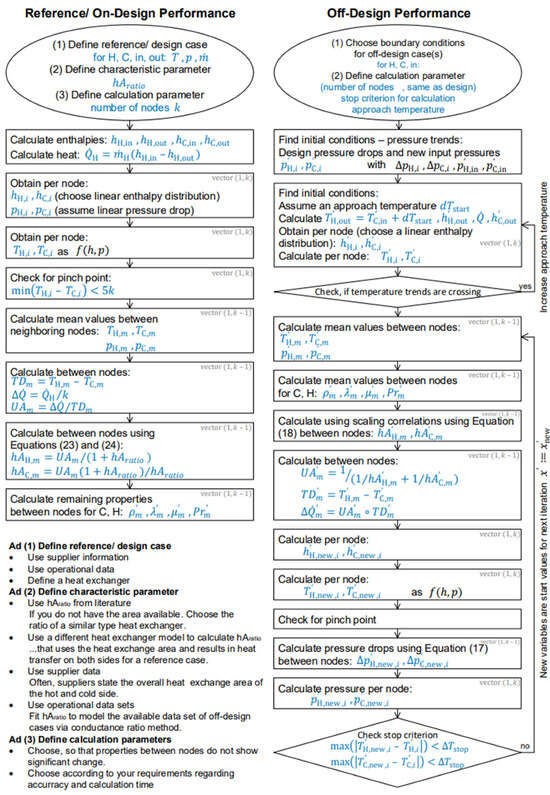 Reference/ On-Design Performance
(1) Define reference/ design case
for H, C, in, out: T , p , ṁ
(2) Define characteristic parameter
hA_ratio
(3) Define calculation parameter
number of nodes k
Calculate enthalpies: h_H,in , h_H,out , h_C,in , h_C,out
Calculate heat: Q̇_H = ṁ_H(h_H,in − h_H,out)
vector (1, k)
Obtain per node:
h_H,i , h_C,i (choose linear enthalpy distribution)
p_H,i , p_C,i (assume linear pressure drop)
vector (1, k)
Obtain per node:
T_H,i , T_C,i as f(h, p)
vector (1, k)
Check for pinch point:
min(T_H,i − T_C,i) < 5k
vector (1, k − 1)
Calculate mean values between
neighboring nodes: T_H,m , T_C,m
p_H,m , p_C,m
vector (1, k − 1)
Calculate between nodes:
TD_m = T_H,m − T_C,m
ΔQ̇ = Q̇_H/k
UA_m = ΔQ̇/TD_m
vector (1, k − 1)
Calculate between nodes using
Equations (23) and (24):
hA_H,m = UA_m/(1 + hA_ratio)
hA_C,m = UA_m(1 + hA_ratio)/hA_ratio
vector (1, k − 1)
Calculate remaining properties
between nodes for C, H: ρ′_m , λ′_m , μ′_m , Pr′_m
Ad (1) Define reference/ design case
• Use supplier information
• Use operational data
• Define a heat exchanger
Ad (2) Define characteristic parameter
• Use hAratio from literature
If you do not have the area available. Choose the
ratio of a similar type heat exchanger.
• Use a different heat exchanger model to calculate hAratio
...that uses the heat exchange area and results in heat
transfer on both sides for a reference case.
• Use supplier data
Often, suppliers state the overall heat exchange area of
the hot and cold side.
• Use operational data sets
Fit hAratio to model the available data set of off-design
cases via conductance ratio method.
Ad (3) Define calculation parameters
• Choose, so that properties between nodes do not show
significant change.
• Choose according to your requirements regarding
accurracy and calculation time
Off-Design Performance
(1) Choose boundary conditions
for off-design case(s)
for H, C, in:
(2) Define calculation parameter
(number of nodes , same as design)
stop criterion for calculation
approach temperature
vector (1, k)
Find initial conditions – pressure trends:
Design pressure drops and new input pressures
p′_H,i , p′_C,i with Δp_H,i , Δp_C,i , p′_H,in , p′_C,in
vector (1, k)
Find initial conditions:
Assume an approach temperature dT_start
Calculate T′_H,out = T′_C,in + dT_start , h′_H,out , Q̇ , h′_C,out
Obtain per node (choose a linear enthalpy
distribution): h′_H,i , h′_C,i
Calculate per node: T′_H,i , T′_C,i
Check, if temperature trends are crossing
yes
Increase approach temperature
vector (1, k − 1)
Calculate mean values between nodes:
T′_H,m , T′_C,m
p_H,m , p_C,m
vector (1, k − 1)
Calculate mean values between nodes
for C, H: ρ′_m , λ′_m , μ′_m , Pr′_m
vector (1, k − 1)
Calculate using scaling correlations using Equation
(18) between nodes: hA_H,m , hA_C,m
vector (1, k − 1)
Calculate between nodes:
UA′_m = 1/(1/hA′_H,m + 1/hA′_C,m)
TD′_m = T′_H,m − T′_C,m
ΔQ̇′_m = UA′_m ∘ TD′_m
vector (1, k)
Calculate per node:
h′_H,new ,i , h′_C,new ,i
vector (1, k)
Calculate per node:
T′_H,new ,i , T′_C,new ,i as f(h, p)
Check for pinch point
vector (1, k − 1)
Calculate pressure drops using Equation (17)
between nodes: Δp′_H,new ,i , Δp′_C,new ,i
vector (1, k)
Calculate pressure per node:
p′_H,new ,i , p′_C,new ,i
Check stop criterion
max(|T′_H,new ,i − T′_H,i|) < ΔT_stop
max(|T′_C,new ,i − T′_C,i|) < ΔT_stop
no
New variables are start values for next iteration x′ := x′_new